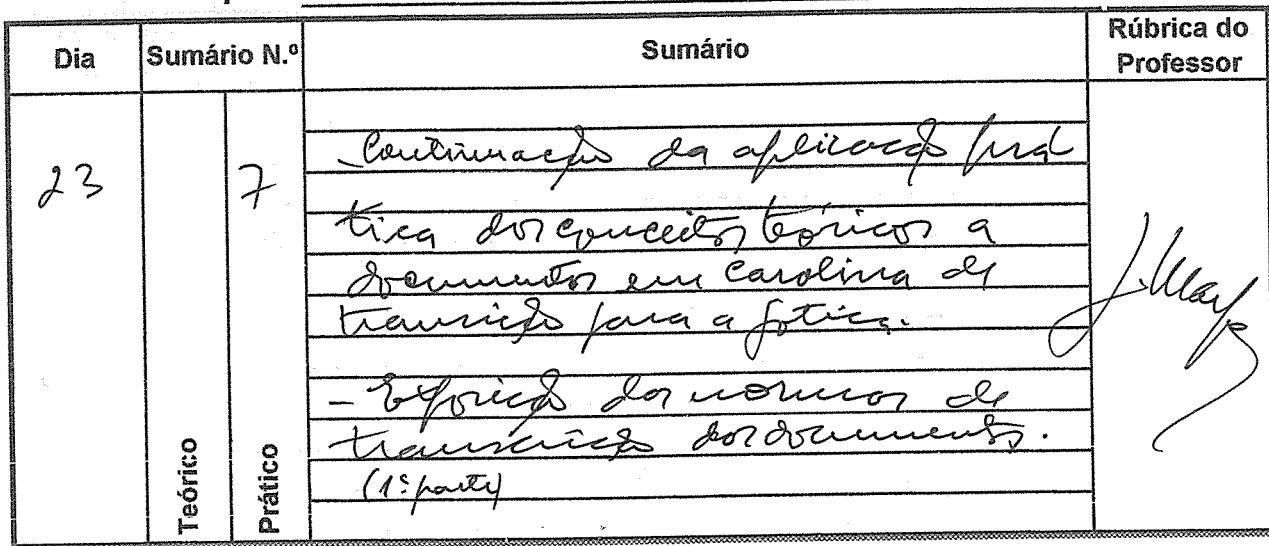 Dia Sumário N.º Sumário Rúbrica do Professor
23 7
- Continuação da aplicação prá
tica dos conceitos teóricos a
documentos em Carolina de
transição para a gótica.
- Exposição das normas de
transcrição dos documentos.
(1ª parte)
Teórico Prático